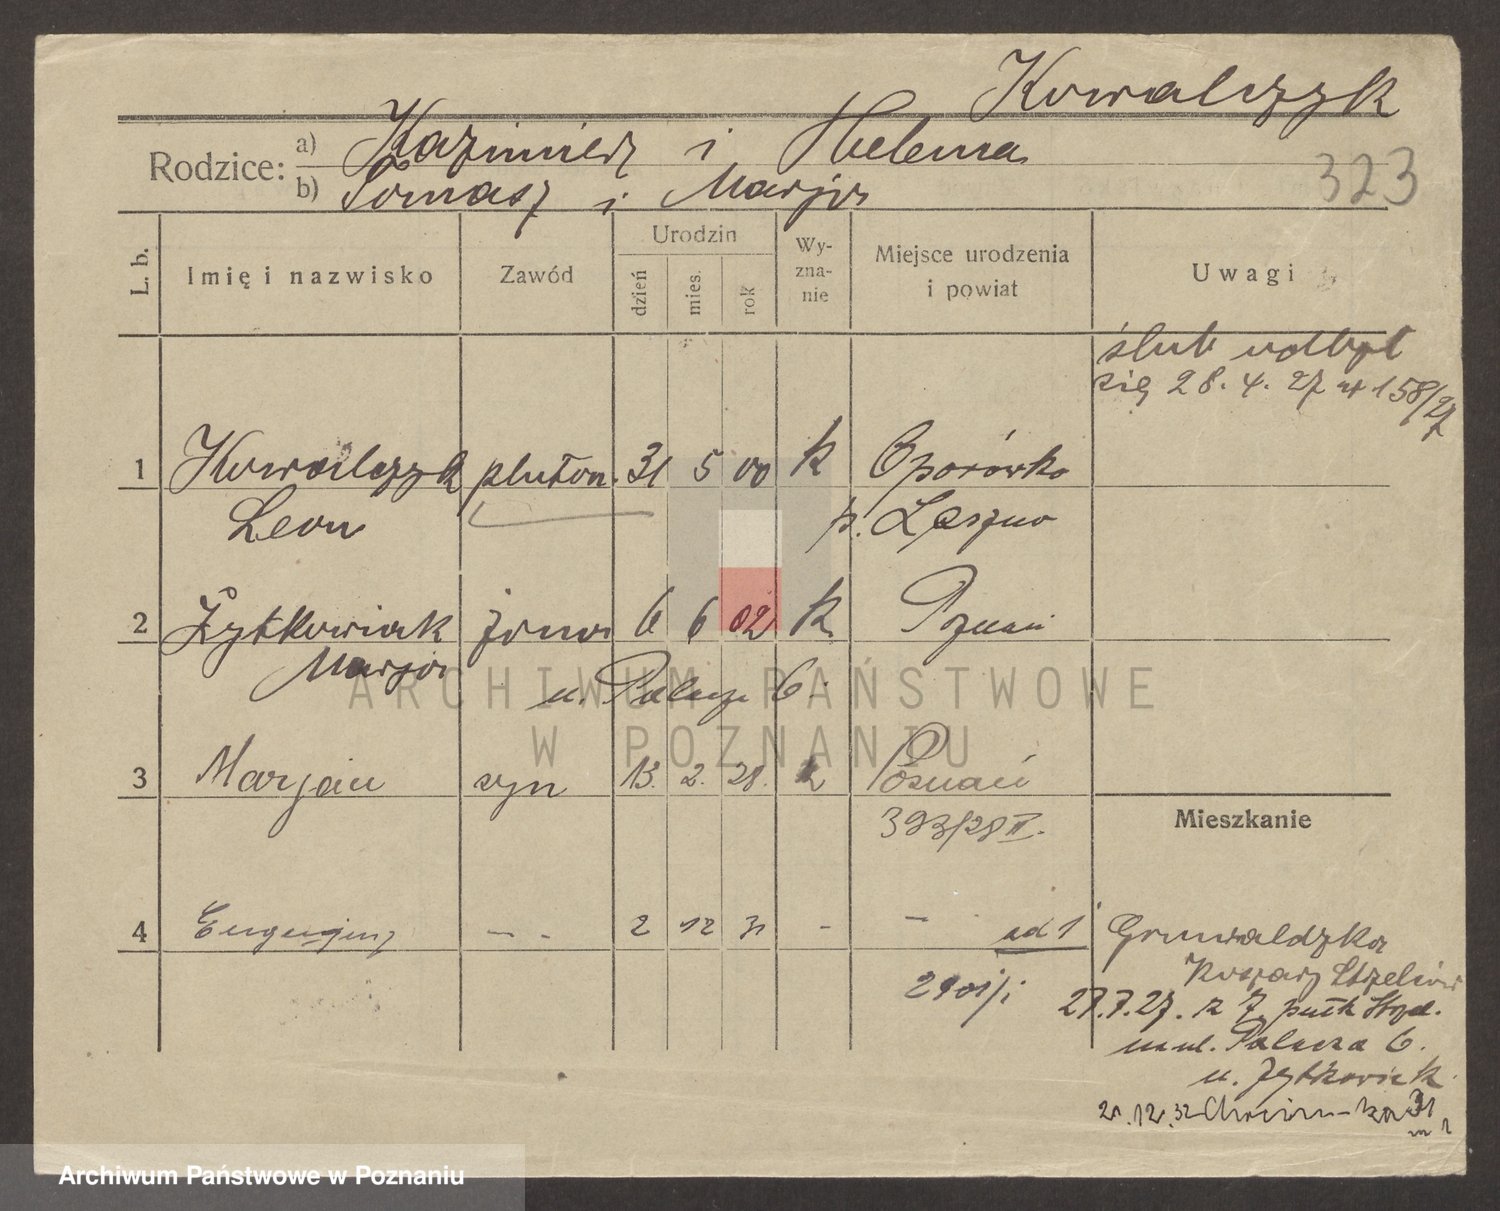 Kowalczyk
Rodzice: a) Kazimierz i Helena
b) Tomasz i Marja
323
L. b.
Imię i nazwisko
Zawód
Urodzin
dzień
mies.
rok
Wy-
zna-
nie
Miejsce urodzenia
i powiat
Uwagi
ślub odbył
się 28. 4. 27 nr 158/27
1 Kowalczyk pluton. 31 5 00 k Oporówko
Leon p. Leszno
2 Żytkowiak żona 6 6 02 k Poznań
Marja
u. Palacza 6.
3 Marjan syn 13. 2. 28. k Poznań
393/28 II.
Mieszkanie
4 Eugenjusz - - 2 12 31 - - ad 1
Grunwaldzka
Koszary Strzelców
2901/i
27.7.27. z 7. pułk Strzel.
na ul. Palacza 6.
u. Żytkowiak
21.12.32
ARCHIWUM PAŃSTWOWE
W POZNANIU
Archiwum Państwowe w Poznaniu